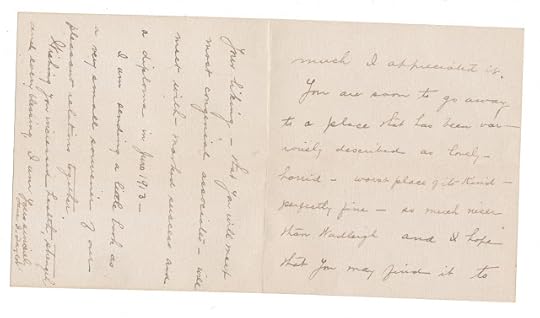 much I appreciated it.
You are soon to go away
to a place that has been var-
iously described as lovely -
horrid - worst place of its kind -
perfectly fine - so much nicer
than Wadleigh and I hope
that you may find it to
your liking - that you will meet
most congenial associates - will
meet with marked success and
a diploma in June 1913 -
I am sending a little book as
a very small souvenir of our
pleasant relations together.
Wishing you increased health, strength
and every blessing, I am
Yours sincerely